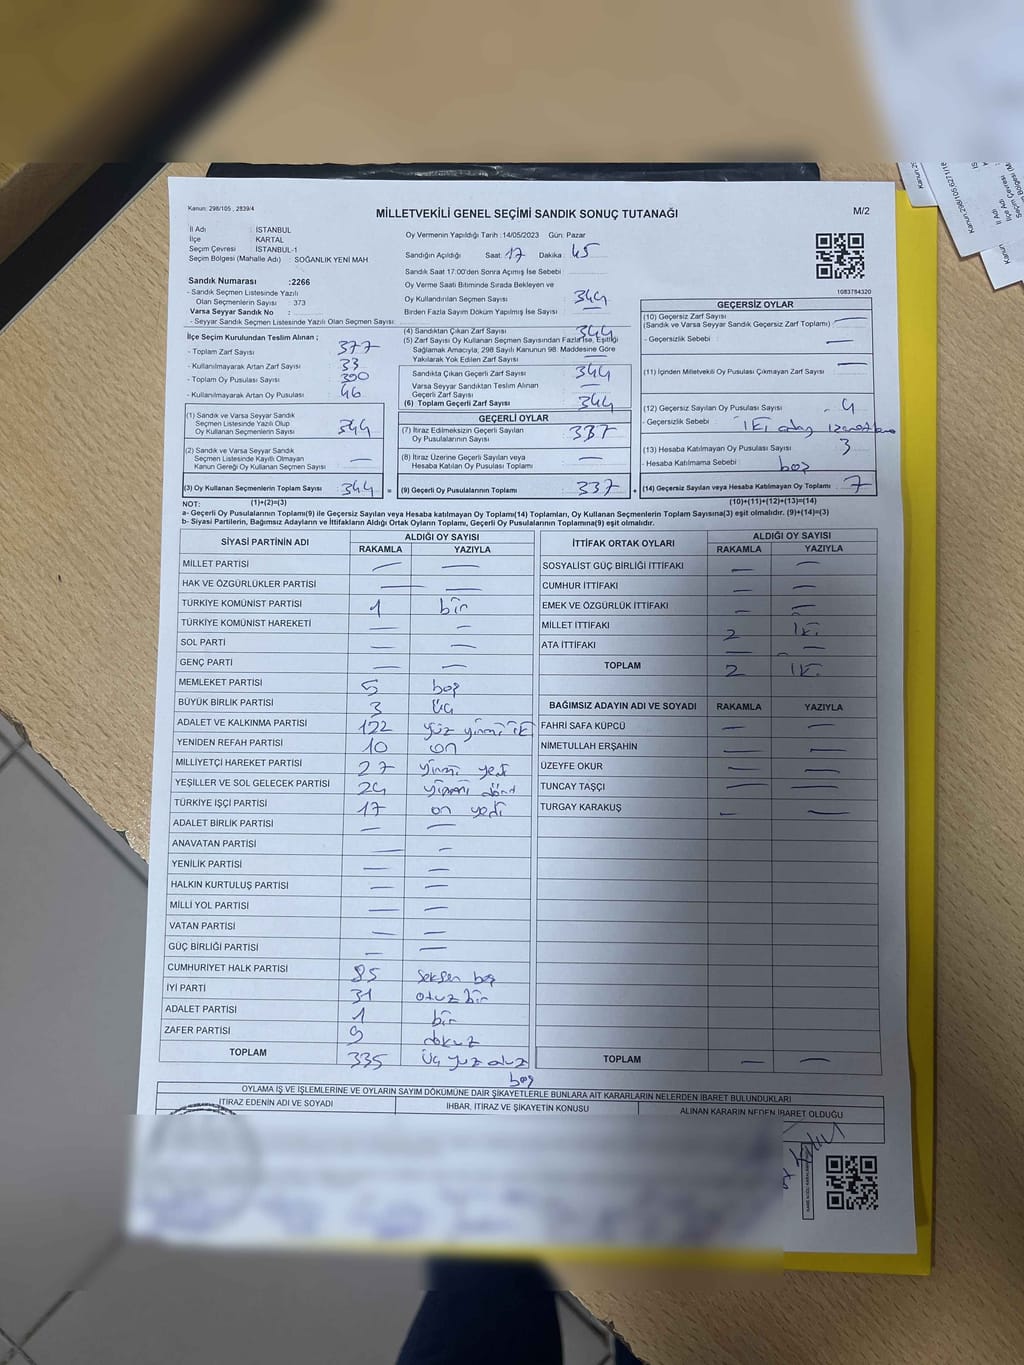 Kanun: 298/105 , 2839/4
MİLLETVEKİLİ GENEL SEÇİMİ SANDIK SONUÇ TUTANAĞI
M/2
İl Adı : İSTANBUL
İlçe : KARTAL
Seçim Çevresi : İSTANBUL-1
Seçim Bölgesi (Mahalle Adı) : SOĞANLIK YENİ MAH
Oy Vermenin Yapıldığı Tarih : 14/05/2023 Gün: Pazar
Sandığın Açıldığı Saat 17 Dakika 45
Sandık Saat 17:00'den Sonra Açımış İse Sebebi
Oy Verme Saati Bitiminde Sırada Bekleyen ve
Oy Kullandırılan Seçmen Sayısı 344
Birden Fazla Sayım Döküm Yapılmış İse Sayısı —
1083784320
Sandık Numarası :2266
- Sandık Seçmen Listesinde Yazılı
Olan Seçmenlerin Sayısı : 373
Varsa Seyyar Sandık No :
- Seyyar Sandık Seçmen Listesinde Yazılı Olan Seçmen Sayısı :
İlçe Seçim Kurulundan Teslim Alınan ;
- Toplam Zarf Sayısı 377
- Kullanılmayarak Artan Zarf Sayısı 33
- Toplam Oy Pusulası Sayısı 390
- Kullanılmayarak Artan Oy Pusulası 46
(1) Sandık ve Varsa Seyyar Sandık
Seçmen Listesinde Yazılı Olup
Oy Kullanan Seçmenlerin Sayısı 344
(2) Sandık ve Varsa Seyyar Sandık
Seçmen Listesinde Kayıtlı Olmayan
Kanun Gereği Oy Kullanan Seçmen Sayısı —
(3) Oy Kullanan Seçmenlerin Toplam Sayısı 344 =
(1)+(2)=(3)
(4) Sandıktan Çıkan Zarf Sayısı 344
(5) Zarf Sayısı Oy Kullanan Seçmen Sayısından Fazla İse, Eşitliği
Sağlamak Amacıyla; 298 Sayılı Kanunun 98. Maddesine Göre
Yakılarak Yok Edilen Zarf Sayısı —
Sandıkta Çıkan Geçerli Zarf Sayısı 344
Varsa Seyyar Sandıktan Teslim Alınan
Geçerli Zarf Sayısı —
(6) Toplam Geçerli Zarf Sayısı 344
GEÇERLİ OYLAR
(7) İtiraz Edilmeksizin Geçerli Sayılan
Oy Pusulalarının Sayısı 337
(8) İtiraz Üzerine Geçerli Sayılan veya
Hesaba Katılan Oy Pusulası Toplamı —
(9) Geçerli Oy Pusulalarının Toplamı 337 +
GEÇERSİZ OYLAR
(10) Geçersiz Zarf Sayısı —
(Sandık ve Varsa Seyyar Sandık Geçersiz Zarf Toplamı)
- Geçersizlik Sebebi : —
(11) İçinden Milletvekili Oy Pusulası Çıkmayan Zarf Sayısı —
(12) Geçersiz Sayılan Oy Pusulası Sayısı 4
- Geçersizlik Sebebi : iki
(13) Hesaba Katılmayan Oy Pusulası Sayısı 3
- Hesaba Katılmama Sebebi : boş
(14) Geçersiz Sayılan veya Hesaba Katılmayan Oy Toplamı 7
(10)+(11)+(12)+(13)=(14)
NOT:
a- Geçerli Oy Pusulalarının Toplamı(9) ile Geçersiz Sayılan veya Hesaba Katılmayan Oy Toplamı(14) Toplamları, Oy Kullanan Seçmenlerin Toplam Sayısına(3) eşit olmalıdır. (9)+(14)=(3)
b- Siyasi Partilerin, Bağımsız Adayların ve İttifakların Aldığı Ortak Oyların Toplamı, Geçerli Oy Pusulalarının Toplamına(9) eşit olmalıdır.
SİYASİ PARTİNİN ADI ALDIĞI OY SAYISI
RAKAMLA YAZIYLA
MİLLET PARTİSİ — —
HAK VE ÖZGÜRLÜKLER PARTİSİ — —
TÜRKİYE KOMÜNİST PARTİSİ 1 bir
TÜRKİYE KOMÜNİST HAREKETİ — —
SOL PARTİ — —
GENÇ PARTİ — —
MEMLEKET PARTİSİ 5 beş
BÜYÜK BİRLİK PARTİSİ 3 üç
ADALET VE KALKINMA PARTİSİ 122 yüz yirmi iki
YENİDEN REFAH PARTİSİ 10 on
MİLLİYETÇİ HAREKET PARTİSİ 27 yirmi yedi
YEŞİLLER VE SOL GELECEK PARTİSİ 24 yirmi dört
TÜRKİYE İŞÇİ PARTİSİ 17 on yedi
ADALET BİRLİK PARTİSİ — —
ANAVATAN PARTİSİ — —
YENİLİK PARTİSİ — —
HALKIN KURTULUŞ PARTİSİ — —
MİLLİ YOL PARTİSİ — —
VATAN PARTİSİ — —
GÜÇ BİRLİĞİ PARTİSİ — —
CUMHURİYET HALK PARTİSİ 85 seksen beş
İYİ PARTİ 31 otuz bir
ADALET PARTİSİ 1 bir
ZAFER PARTİSİ 9 dokuz
TOPLAM 335 üç yüz otuz
beş
İTTİFAK ORTAK OYLARI ALDIĞI OY SAYISI
RAKAMLA YAZIYLA
SOSYALİST GÜÇ BİRLİĞİ İTTİFAKI — —
CUMHUR İTTİFAKI — —
EMEK VE ÖZGÜRLÜK İTTİFAKI — —
MİLLET İTTİFAKI 2 iki
ATA İTTİFAKI — —
TOPLAM 2 iki
BAĞIMSIZ ADAYIN ADI VE SOYADI RAKAMLA YAZIYLA
FAHRİ SAFA KÜPCÜ — —
NİMETULLAH ERŞAHİN — —
ÜZEYFE OKUR — —
TUNCAY TAŞÇI — —
TURGAY KARAKUŞ — —
TOPLAM — —
OYLAMA İŞ VE İŞLEMLERİNE VE OYLARIN SAYIM DÖKÜMÜNE DAİR ŞİKAYETLERLE BUNLARA AİT KARARLARIN NELERDEN İBARET BULUNDUKLARI
İTİRAZ EDENİN ADI VE SOYADI İHBAR, İTİRAZ VE ŞİKAYETİN KONUSU ALINAN KARARIN NEDEN İBARET OLDUĞU